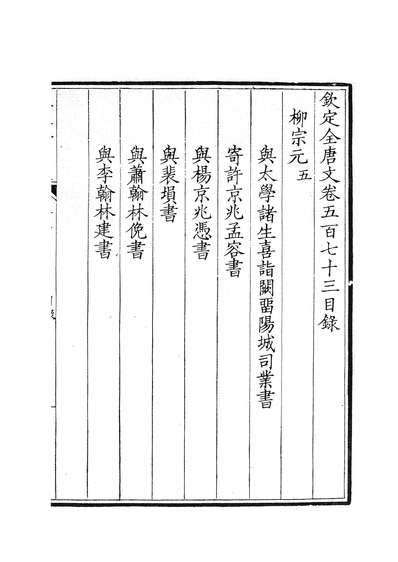 欽定全唐文卷五百七十三目錄
柳宗元五
與太學諸生喜詣闕留陽城司業書
寄許京兆孟容書
與楊京兆憑書
與裴塤書
與蕭翰林俛書
與李翰林建書